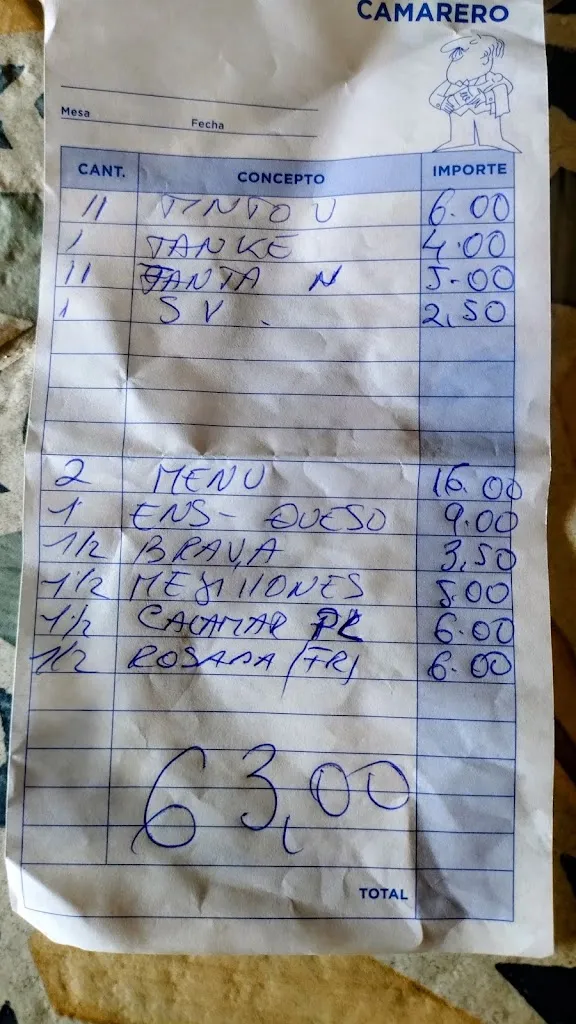 CAMARERO
Mesa
Fecha
CANT. CONCEPTO IMPORTE
11 TINTO U 6.00
1 TANKE 4.00
11 FANTA N 5.00
1 S V . 2,50
2 MENU 16.00
1 ENS- QUESO 9.00
1/2 BRAVA 3,50
1/2 MEJILLONES 5.00
1/2 CALAMAR PL 6.00
1/2 ROSADA (FR) 6.00
63,00
TOTAL